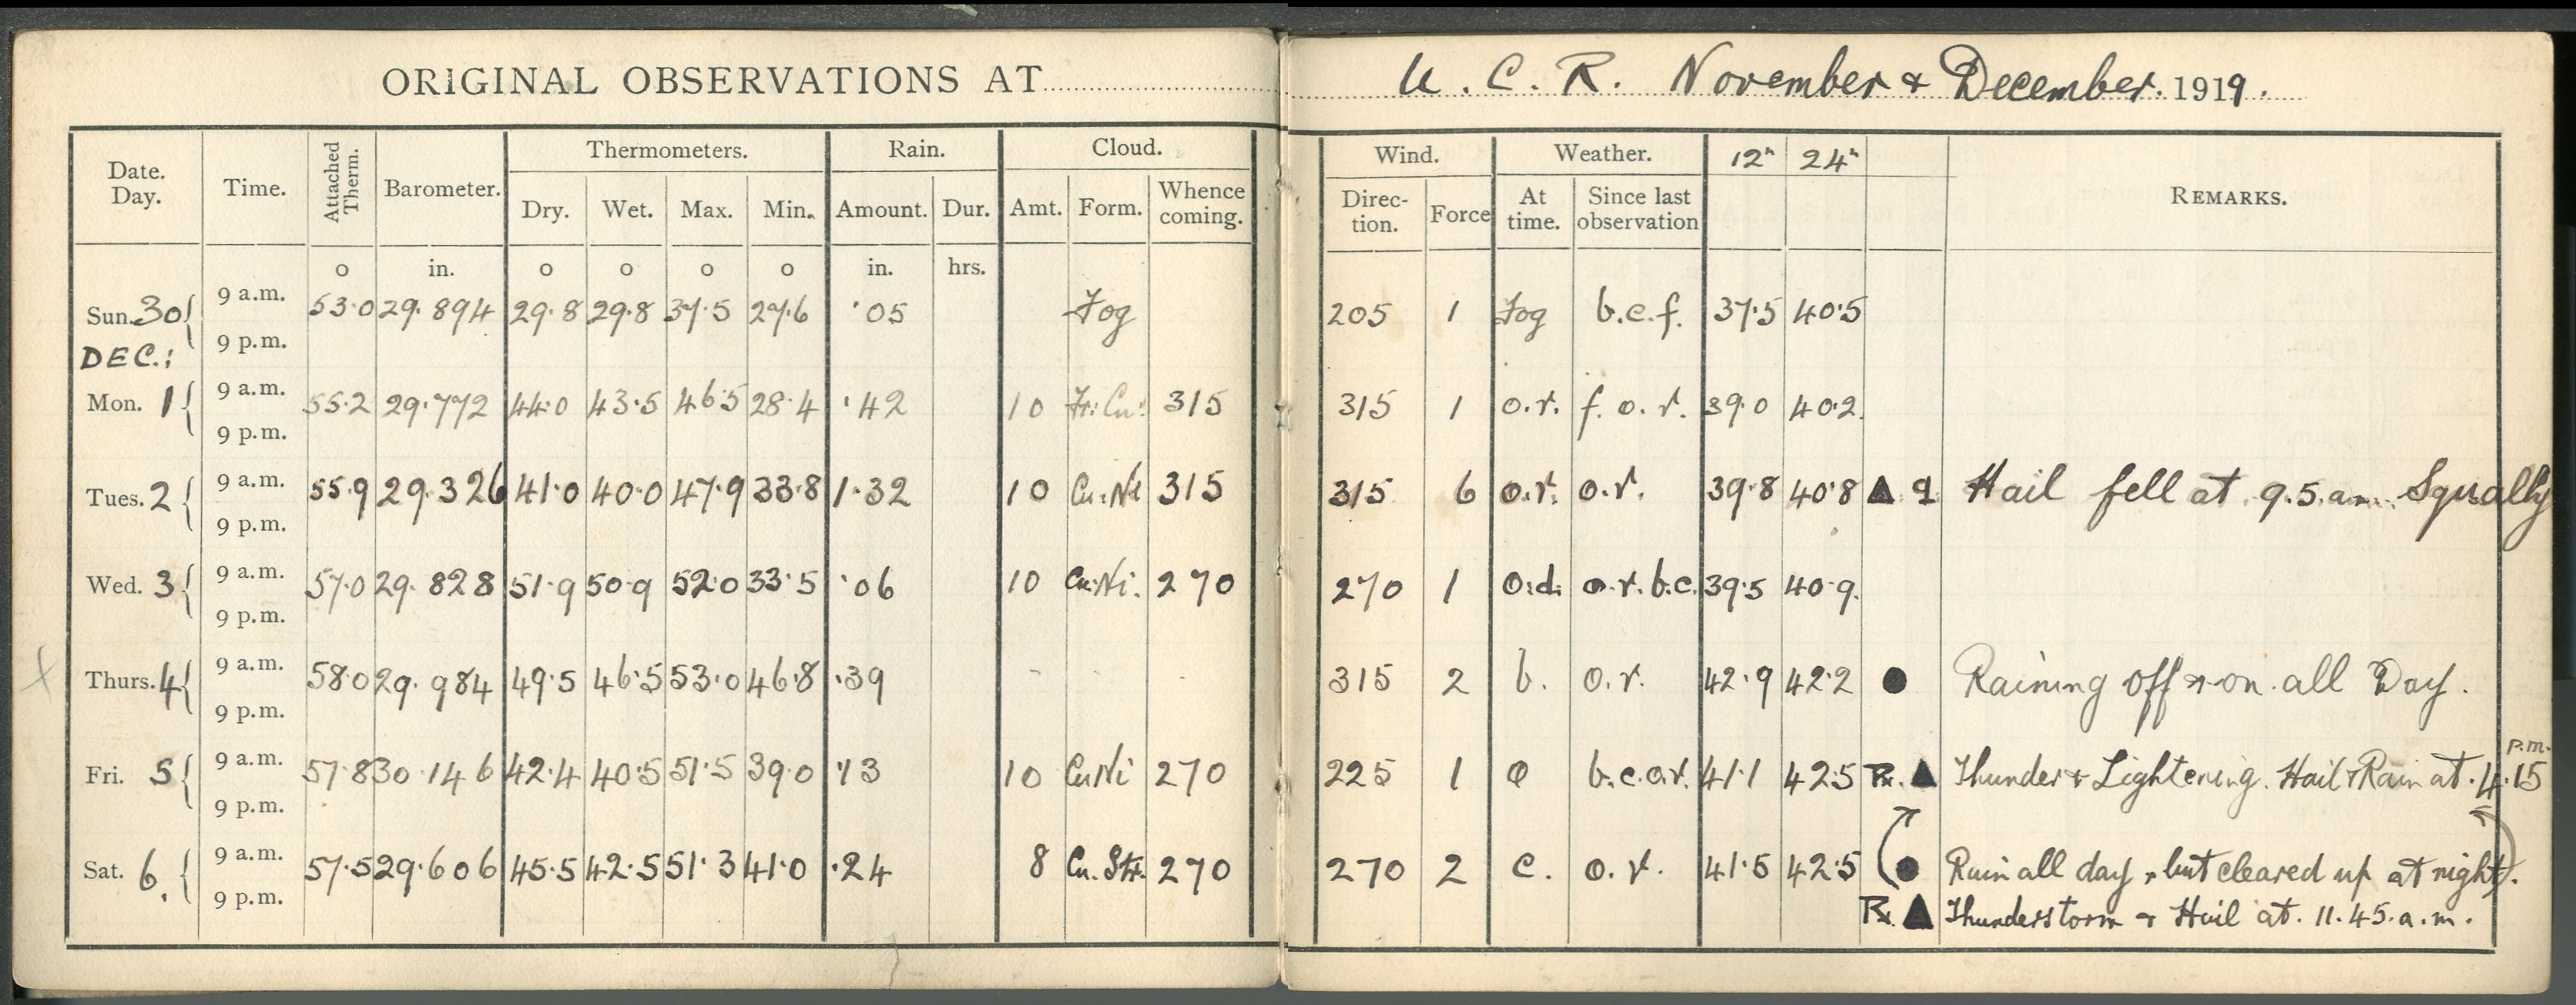 ORIGINAL OBSERVATIONS AT U. C. R. November & December. 1919.
Date. Day. Time. Attached Therm. Barometer. Thermometers. Rain. Cloud. Wind. Weather. 12h 24h REMARKS.
Dry. Wet. Max. Min. Amount. Dur. Amt. Form. Whence coming. Direc-tion. Force At time. Since last observation
o in. o o o o in. hrs.
Sun. 30 9 a.m. 53.0 29.894 29.8 29.8 37.5 27.6 .05 Fog 205 1 Fog b.c.f. 37.5 40.5
9 p.m.
DEC.:
Mon. 1 9 a.m. 55.2 29.772 44.0 43.5 46.5 28.4 .42 10 Fr:Cu: 315 315 1 o.r. f.o.r. 39.0 40.2.
9 p.m.
Tues. 2 9 a.m. 55.9 29.326 41.0 40.0 47.9 33.8 1.32 10 Cu:Ni 315 315 6 o.r. o.r. 39.8 40.8 ▲ q Hail fell at 9.5.a.m. Squally
9 p.m.
Wed. 3 9 a.m. 57.0 29.828 51.9 50.9 52.0 33.5 .06 10 Cu:Ni. 270 270 1 o.d. o.r.b.c. 39.5 40.9.
9 p.m.
Thurs. 4 9 a.m. 58.0 29.984 49.5 46.5 53.0 46.8 .39 - - 315 2 b. o.r. 42.9 42.2 ● Raining off & on all Day.
9 p.m.
Fri. 5 9 a.m. 57.8 30.146 42.4 40.5 51.5 39.0 .13 10 CuNi 270 225 1 o b.c.o.r. 41.1 42.5 ▲ Thunder & Lightening. Hail & Rain at 4.15 p.m.
9 p.m.
Sat. 6. 9 a.m. 57.5 29.606 45.5 42.5 51.3 41.0 .24 8 Cu.Str. 270 270 2 c. o.r. 41.5 42.5 ● Rain all day, but cleared up at night.
9 p.m. ▲ Thunderstorm & Hail at 11.45.a.m.